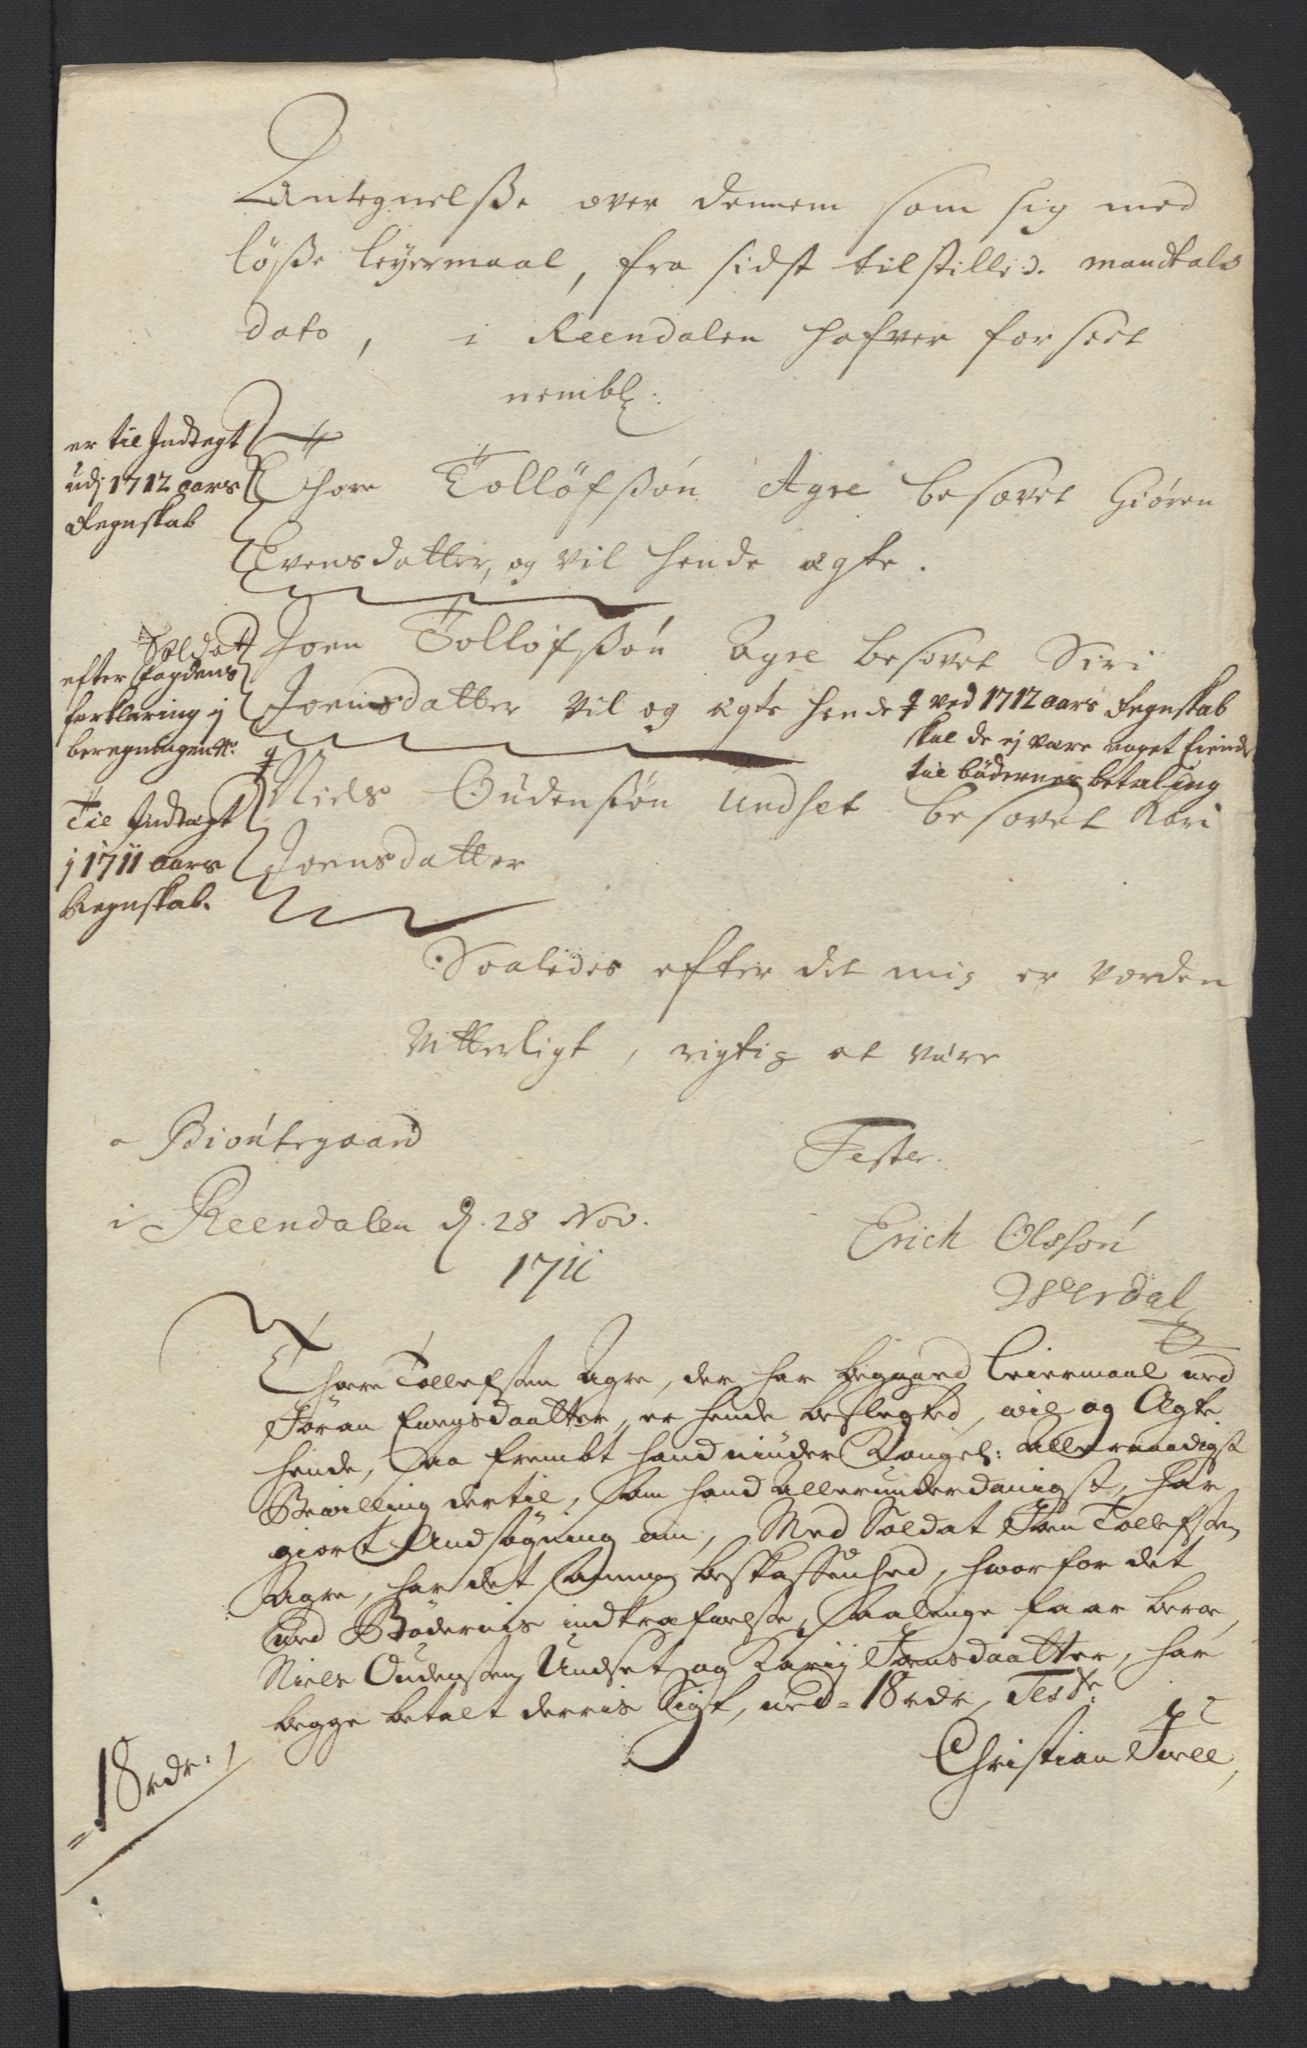 Antegnelsße over dennem som sig med
løsße leyermaal, fra sidst tilstilled. mandtals
dato, i Reendalen hafver forseet
nembl:
er til Indtegt
udj 1712 aars
Regnskab
Thore Tolløfsßøn Agre besovet Giøren
Evensdatter, og vil hende ægte.
Soldat
efter fogdens
forklaring j
beregningen
Joen Tolløfsßøn Agre besovet Siri
Joensdatter vil og ægte hende
ved 1712 aars Regnskab
skal de ej være noget fiende
til bødernes betaling
Til Indtægt
j 1711 aars
Regnskab.
Niels Oudensßøn Undset besovet Kari
Joensdatter
Saaledes efter det mig er vorden
Vitterligt, rigtig at være
a Biøntegaard
i Reendalen d. 28 Nov.
1711
Tester.
Erich Olsøn
Werdal
Thore Tollefsen Agre, der har begaaed Leiermaal med
Jøran Evensdaatter, er hende beslegted, wil og Ægte
hende, saa fremt hand niuder Kongel: allernaadigst
Bewilling dertil, som hand allerunderdanigst, har
giort Andsøgning om, Med Soldat Joen Tollefsen
Agre, har det samme beskaffenhed, hworfor det
med Bødernis indkrefwelse, saalenge faar beroe,
Niels Oudensen Undset og Karij Jonsdaatter, har
begge betalt derris Sigt, med = 18 rdr, Test:
Christian Juell
= 18 rdr: